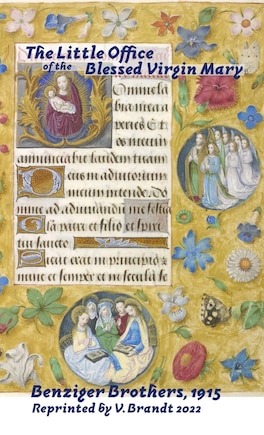 The Little Office
of the Blessed Virgin Mary
Omine la
bia mea a
peries Et
os meum
annunciabit laudem tuam
Deus in adiutorium
meum intende. Do
mine ad adiuvandū me festina
Glīa patri et filio et spiri
tui sancto
Sicut erat in principio &
nunc et semper et in secula se
Benziger Brothers, 1915
Reprinted by V. Brandt 2022